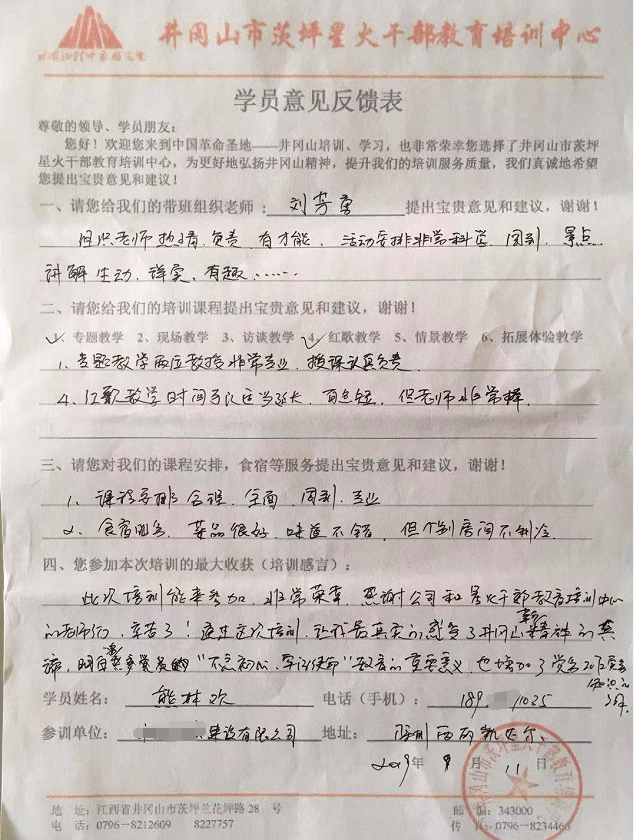 井冈山市茨坪星火干部教育培训中心
学员意见反馈表
尊敬的领导、学员朋友：
您好！欢迎您来到中国革命圣地——井冈山培训、学习，也非常荣幸您选择了井冈山市茨坪
星火干部教育培训中心，为更好地弘扬井冈山精神，提升我们的培训服务质量，我们真诚地希望
您提出宝贵意见和建议！
一、请您给我们的带班组织老师：刘芳勇 提出宝贵意见和建议，谢谢！
组织老师热情、负责、有才能、活动安排非常科学、周到、景点
讲解生动、详实、有趣……
二、请您给我们的培训课程提出宝贵意见和建议，谢谢！
专题教学 2、现场教学 3、访谈教学 4、红歌教学 5、情景教学 6、拓展体验教学
1、专题教学两位教授非常专业，授课认真负责
4、红歌教学时间可以适当延长，有点短，但老师非常棒
三、请您对我们的课程安排，食宿等服务提出宝贵意见和建议，谢谢！
1、课程安排合理、全面、周到、专业
2、食宿服务，菜品很好，味道不错，但个别房间不制冷
四、您参加本次培训的最大收获（培训感言）：
此次培训能来参加，非常荣幸，感谢公司和星火干部教育培训中心
的老师们，辛苦了！通过这次培训，让我最真实的感受了井冈山精神的真
谛，明白 "不忘初心，牢记使命"教育的重要意义，也增加了党务
学员姓名：熊林欢 电话（手机）：189 1025
参训单位： 建设有限公司 地址：深圳
2019年9月11日
地 址：江西省井冈山市茨坪兰花坪路28号 邮 编：343000
电 话：0796-8212609 8227757 传 真：0796-8234466